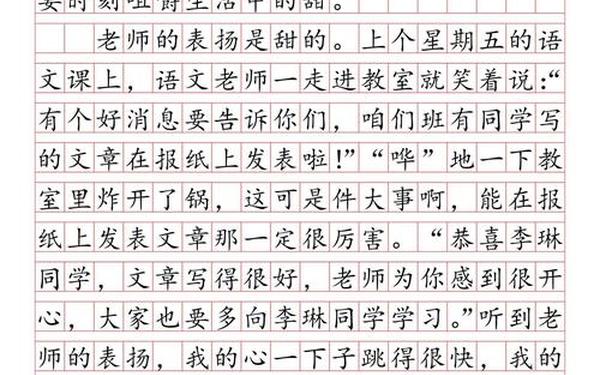 要时刻咀嚼生活中的甜。
老师的表扬是甜的。上个星期五的语
文课上，语文老师一走进教室就笑着说：“
有个好消息要告诉你们，咱们班有同学写
的文章在报纸上发表啦！”“哗”地一下教
室里炸开了锅，这可是件大事啊，能在报
纸上发表文章那一定很厉害。“恭喜李琳
同学，文章写得很好，老师为你感到很开
心，大家也要多向李琳同学学习。”听到老
师的表扬，我的心一下子跳得很快，我的